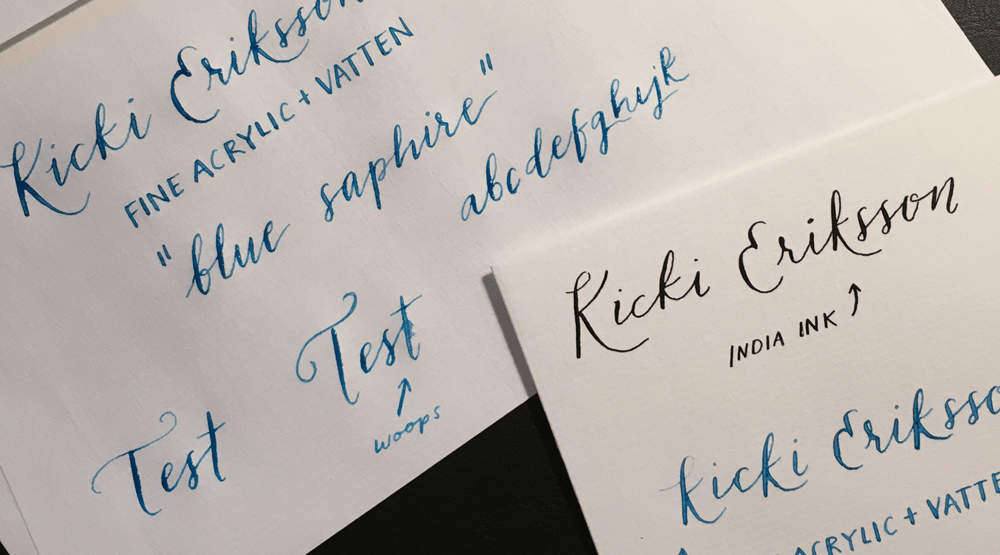 Kicki Eriksson
FINE ACRYLIC + VATTEN
"blue saphire"
abcdefghijk
Test
↑
woops
Test
Kicki Eriksson
INDIA INK ↑
Kicki Eriksso
ACRYLIC + VATTE